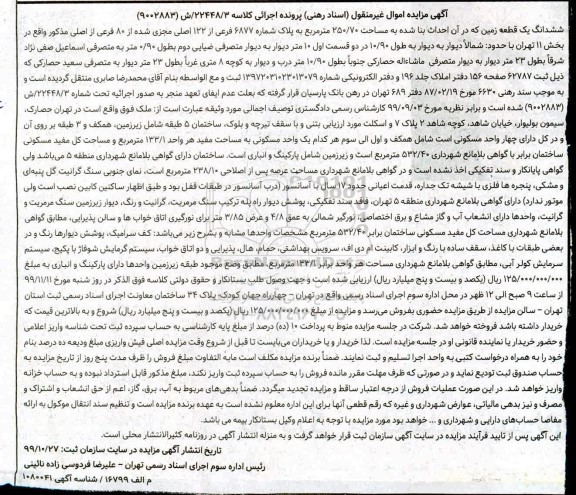 آگهی مزایده اموال غیرمنقول (اسناد رهنی) پرونده اجرائی کلاسه ۲۲۴۴۸/۳/ش (۹۰۰۲۸۸۳)
ششدانگ یک قطعه زمین که در آن احداث بنا شده به مساحت ۲۵۰/۷۰ مترمربع به پلاک شماره ۶۸۷۷ فرعی از ۱۲۲ اصلی مجزی شده از ۸۰ فرعی از اصلی مذکور واقع در
بخش ۱۱ تهران با حدود: شمالاً دیوار به دیوار به طول ۱۰/۹۰ در دو قسمت اول ۱۰ متر دیوار به دیوار متصرفی ضیایی دوم بطول ۰/۹۰ متر به متصرفی اسماعیل صفی نژاد
شرقاً بطول ۲۳ متر دیوار به دیوار متصرفی ماشااله حصارکی جنوباً بطول ۱۰/۹۰ متر درب و دیوار به کوچه ۸ متری غرباً بطول ۲۳ متر دیوار به دیوار به متصرفی سعید حصارکی که
ذیل ثبت ۶۲۷۸۷ صفحه ۱۵۶ دفتر املاک جلد ۱۹۶ و دفتر الکترونیکی شماره ۱۳۹۷۲۰۳۰۱۰۲۳۰۱۳۰۷۹ ثبت و مع الواسطه بنام آقای محمدرضا صابری منتقل گردیده است و
به موجب سند رهنی ۶۶۳۰ مورخ ۸۷/۰۲/۱۹ دفتر ۶۸۹ تهران در رهن بانک پارسیان قرار گرفته که بعلت عدم ایفای تعهد منجر به صدور اجرائیه تحت شماره ۲۲۴۴۸/۳/ش
(۹۰۰۲۸۸۳) شده است و برابر نظریه مورخ ۹۹/۰۹/۰۳ کارشناس رسمی دادگستری توصیف اجمالی مورد وثیقه عبارت است از: ملک فوق واقع است در تهران حصارک،
سیمون بولیوار، خیابان شاهد، کوچه شاهد ۲ پلاک ۷ و اسکلت مورد ارزیابی بتنی و با سقف تیرچه و بلوک، ساختمان ۵ طبقه شامل زیرزمین، همکف و ۳ طبقه بر روی آن
و در کل دارای چهار واحد مسکونی است شامل همکف و اول الی سوم هر کدام یک واحد مسکونی به مساحت مفید هر واحد ۱۳۳/۱ مترمربع و مساحت کل مفید مسکونی
ساختمان برابر با گواهی بلامانع شهرداری ۵۳۲/۴۰ مترمربع است و زیرزمین شامل پارکینگ و انباری است. ساختمان دارای گواهی بلامانع شهرداری منطقه ۵ می‌باشد ولی
گواهی پایانکار و سند تفکیکی اخذ نشده است و در گواهی بلامانع شهرداری مساحت عرصه پس از اصلاحی ۲۳۸/۱۰ مترمربع است، نمای جنوبی سنگ گرانیت گل پنبه‌ای
و مشکی، پنجره ها فلزی با شیشه تک جداره، قدمت اعیانی حدود ۱۷ سال، آسانسور (درب آسانسور در طبقات قفل بود و طبق اظهار ساکنین کابین نصب است ولی
موتور ندارد) دارای گواهی بلامانع شهرداری منطقه ۵ تهران و فاقد سند تفکیکی، پوشش دیوار راه پله ترکیب سنگ مرمریت، گرانیت و رنگ، دیوار زیرزمین سنگ مرمریت و
گرانیت، واحدها دارای انشعاب آب و گاز مشاع و برق اختصاصی نورگیر شمالی به عمق ۴/۸ و عرض ۳/۸۵ متر برای نورگیری اتاق خواب ها و سالن پذیرایی، مطابق گواهی
بلامانع شهرداری مساحت کل مفید مسکونی ساختمان برابر ۵۳۲/۴۰ مترمربع مشخصات واحدها مشابه و بشرح زیر می‌باشد: کف سرامیک، پوشش دیوارها رنگ و در
بعضی طبقات با کاغذ، سقف ساده با رنگ و ابزار، کابینت ام دی اف، سرویس بهداشتی، حمام، هال، پذیرایی و دو اتاق خواب، سیستم گرمایش شوفاژ با پکیج، سیستم
سرمایش کولر آبی، مطابق گواهی بلامانع شهرداری مساحت هر واحد برابر ۱۳۳/۱ مترمربع، مطابق وضع موجود طبقه زیرزمین واحدها دارای پارکینگ و انباری به مبلغ
۱۲۵/۰۰۰/۰۰۰/۰۰۰ ریال (یکصد و بیست و پنج میلیارد ریال) ارزیابی شده است و جهت وصول طلب بستانکار و حقوق دولتی کلاسه فوق الذکر در روز شنبه مورخ ۹۹/۱۱/۱۱
از ساعت ۹ صبح الی ۱۲ ظهر در محل اداره سوم اجرای اسناد رسمی واقع در تهران - چهارراه جهان کودک، پلاک ۳۴ ساختمان معاونت اجرای اسناد رسمی ثبت استان
تهران - سالن مزایده از طریق مزایده حضوری بفروش می‌رسد و مزایده از مبلغ ۱۲۵/۰۰۰/۰۰۰/۰۰۰ ریال (یکصد و بیست و پنج میلیارد ریال) شروع و به بالاترین قیمت که
خریدار داشته باشد فروخته خواهد شد. شرکت در جلسه مزایده منوط به پرداخت ۱۰ (ده) درصد از مبلغ پایه کارشناسی به حساب سپرده ثبت تحت شناسه واریز اعلامی
و حضور خریدار یا نماینده قانونی او در جلسه مزایده است. لذا خریدار و یا خریداران می‌بایست تا قبل از شروع وقت مزایده اصلی فیش واریزی مبلغ ودیعه ده درصد بنام
خود را به همراه درخواست کتبی به واحد اجرا تسلیم و ثبت نمایند. ضمناً برنده مزایده مکلف است مابه التفاوت مبلغ فروش را ظرف مدت پنج روز از تاریخ مزایده به
حساب صندوق ثبت تودیع نماید و در صورتی که ظرف مهلت مقرر مانده فروش را به حساب سپرده ثبت واریز نکند، مبلغ مذکور قابل استرداد نبوده و به حساب خزانه
واریز خواهد شد. در این صورت عملیات فروش از درجه اعتبار ساقط و مزایده تجدید میگردد. ضمناً بدهی‌های مربوط به آب، برق، گاز، اعم از حق انشعاب و اشتراک و
مصرف و نیز بدهی مالیاتی، عوارض شهرداری و غیره که رقم قطعی آنها برای این اداره معلوم نشده است به عهده برنده مزایده است و تنظیم سند انتقال موکول به ارائه
مفاصا حساب‌های دارایی و شهرداری و ... خواهد بود مورد مزایده با توجه به اعلام وکیل بستانکار بیمه می باشد.
این آگهی پس از تایید فرآیند مزایده در سایت آگهی سازمان ثبت قرار خواهد گرفت و به منزله انتشار آگهی در روزنامه کثیرالانتشار محلی است.
تاریخ انتشار آگهی مزایده در سایت سازمان ثبت: ۹۹/۱۰/۲۷
رئیس اداره سوم اجرای اسناد رسمی تهران - علیرضا فردوسی زاده نائینی
م الف ۱۶۷۹۹ / شناسه آگهی ۱۰۸۰۰۴۱